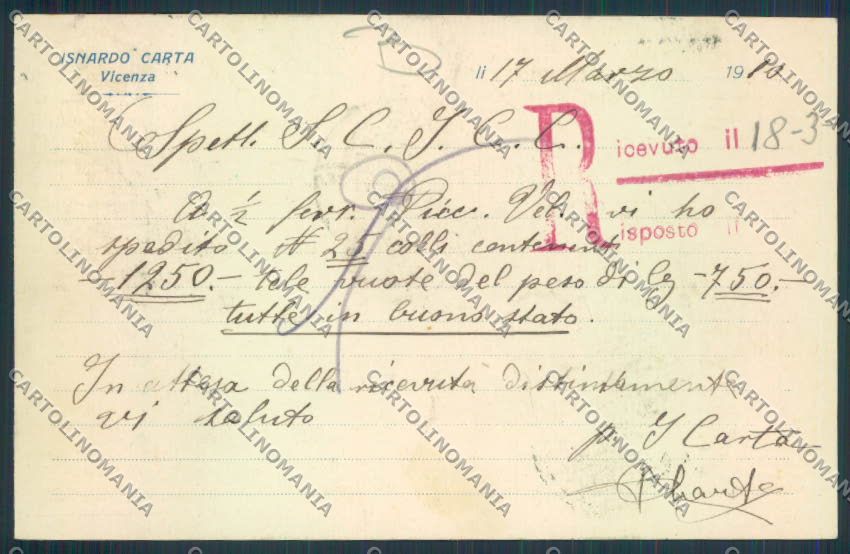 ISNARDO CARTA
Vicenza
li 17 Marzo 1910
Spett. S. C. I. C. C.
Ricevuto il 18-3
A ½ ferr. Picc. Vel. vi ho
Risposto il
spedito N 25 colli contenenti
-1250.- tele vuote del peso di Kg -750.-
tutte in buono stato.
In attesa della ricevuta distintamente
vi saluto
p. I Carta
CARTOLINOMANIA